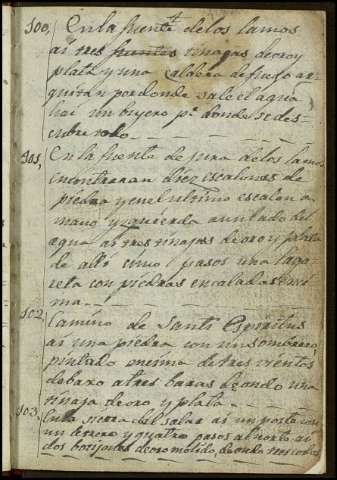 300, En la fuente de los lamos
ai tres fuentes tinajas de oro y
plata y una caldera de fuego
quitan por donde sale el agua
hai un bujero pr donde se des
cubre todo
301, En la fuente de jura de los lamos
encontraran diez escalones de
piedra y en el ultimo escalon a
mano yzquierda a un lado del
agua ai tres tinajas de oro y plata
de alli cinco pasos una laga
reta con piedras encaladas enci
ma.
302 Camino de Santi Espiritus
ai una piedra con un sombrero
pintado encima de tres vientos
debaxo a tres baras de ondo una
tinaja de oro y plata
303, En la sierra del salar ai un
un terrero y quatro pasos al norte ai
dos botijones de oro molido, de ondo